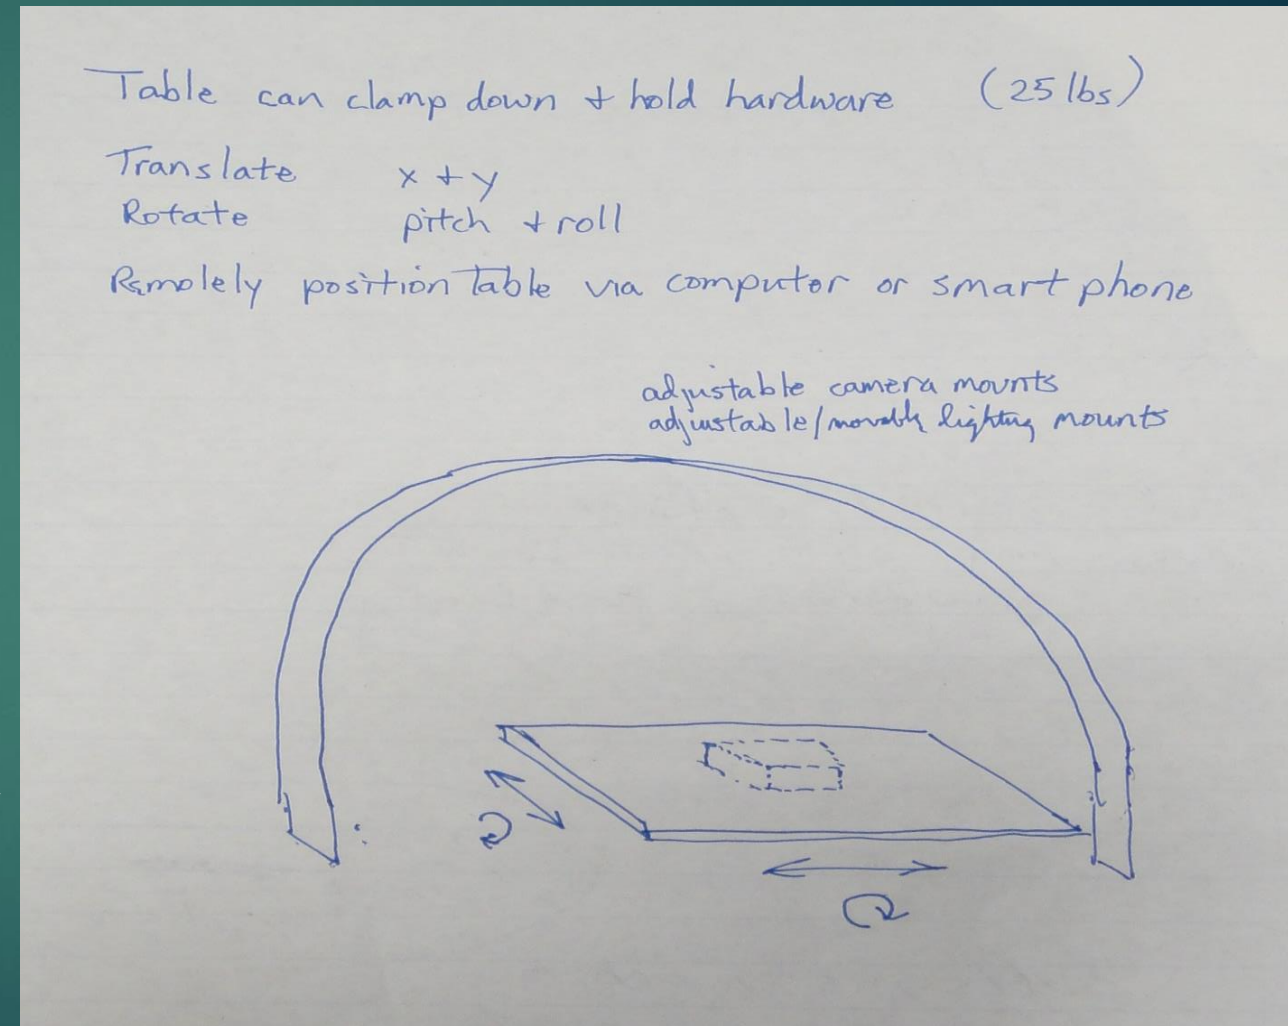 Table can clamp down + hold hardware (25 lbs)
Translate x + y
Rotate pitch + roll
Remotely position Table via computer or smart phone
adjustable camera mounts
adjustable/movable lighting mounts